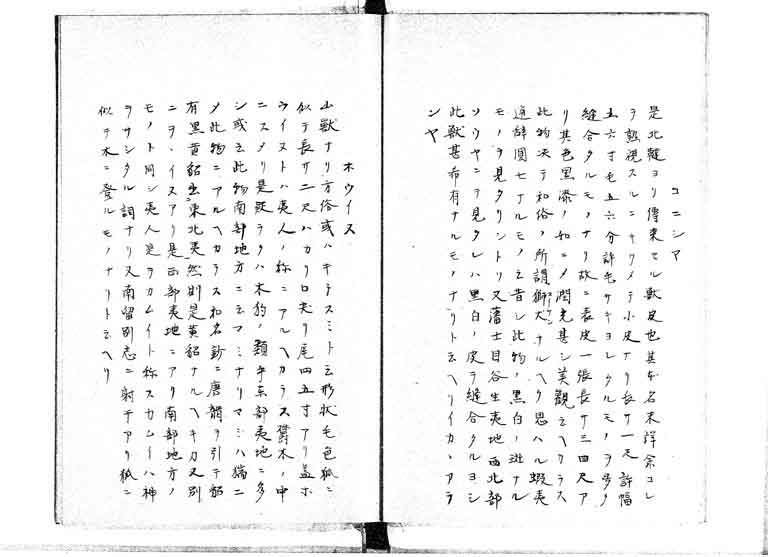 コニシア
是北韃ヨリ傳来セル獣皮也其本名未詳余コレ
ヲ熟視スルニキワメテ小皮ナリ長サ一尺許幅
五六寸毛五六分許毛サキヨレタルモノヲ多ク
縫合タルモノナリ故ニ表皮一張長サ三四尺ア
リ其色黒漆ノ如ニメ潤光甚シ美観云ヘカラス
此物决テ和俗ノ所謂獅犬ナルヘク思ハル蝦夷
通辞圓七ナルモノ云昔シ此物ノ黒白ノ斑ナル
モノヲ見タリシトリ又藩士目谷生夷地西北部
ソウヤニテ見タレハ黒白ノ皮ヲ縫合タルヨシ
此獣甚希有ナルモノナリト云ヘリイカヽアラ
ンヤ
ホウイス
山獣ナリ方俗或ハキテラスミト云形状毛色狐ニ
似テ長サ二尺ハカリ口尖リ尾四五寸アリ蓋ホ
ウイストハ夷人ノ称ニアルヘカラス喬木ノ中
ニスメリ是疑ラクハ木豹ノ類乎東部夷地ニ多
シ或云此物南部地方ニ云フミナリマミハ猯ニ
メ此物ニアルヘカラス和名鈔ニ唐韻ヲ引テ貂
有黒貂黄貂出東北夷然則是黄貂ナルヘキカ又別
ニヲヽイスアリ是西部夷地ニアリ南部地方ノ
モノト同シ夷人是ヲカムイト称スカムーハ神
ヲサシタル詞ナリ又南留別志ニ射干アリ狐ニ
似テ木ニ登ルモノナリト云ヘリ